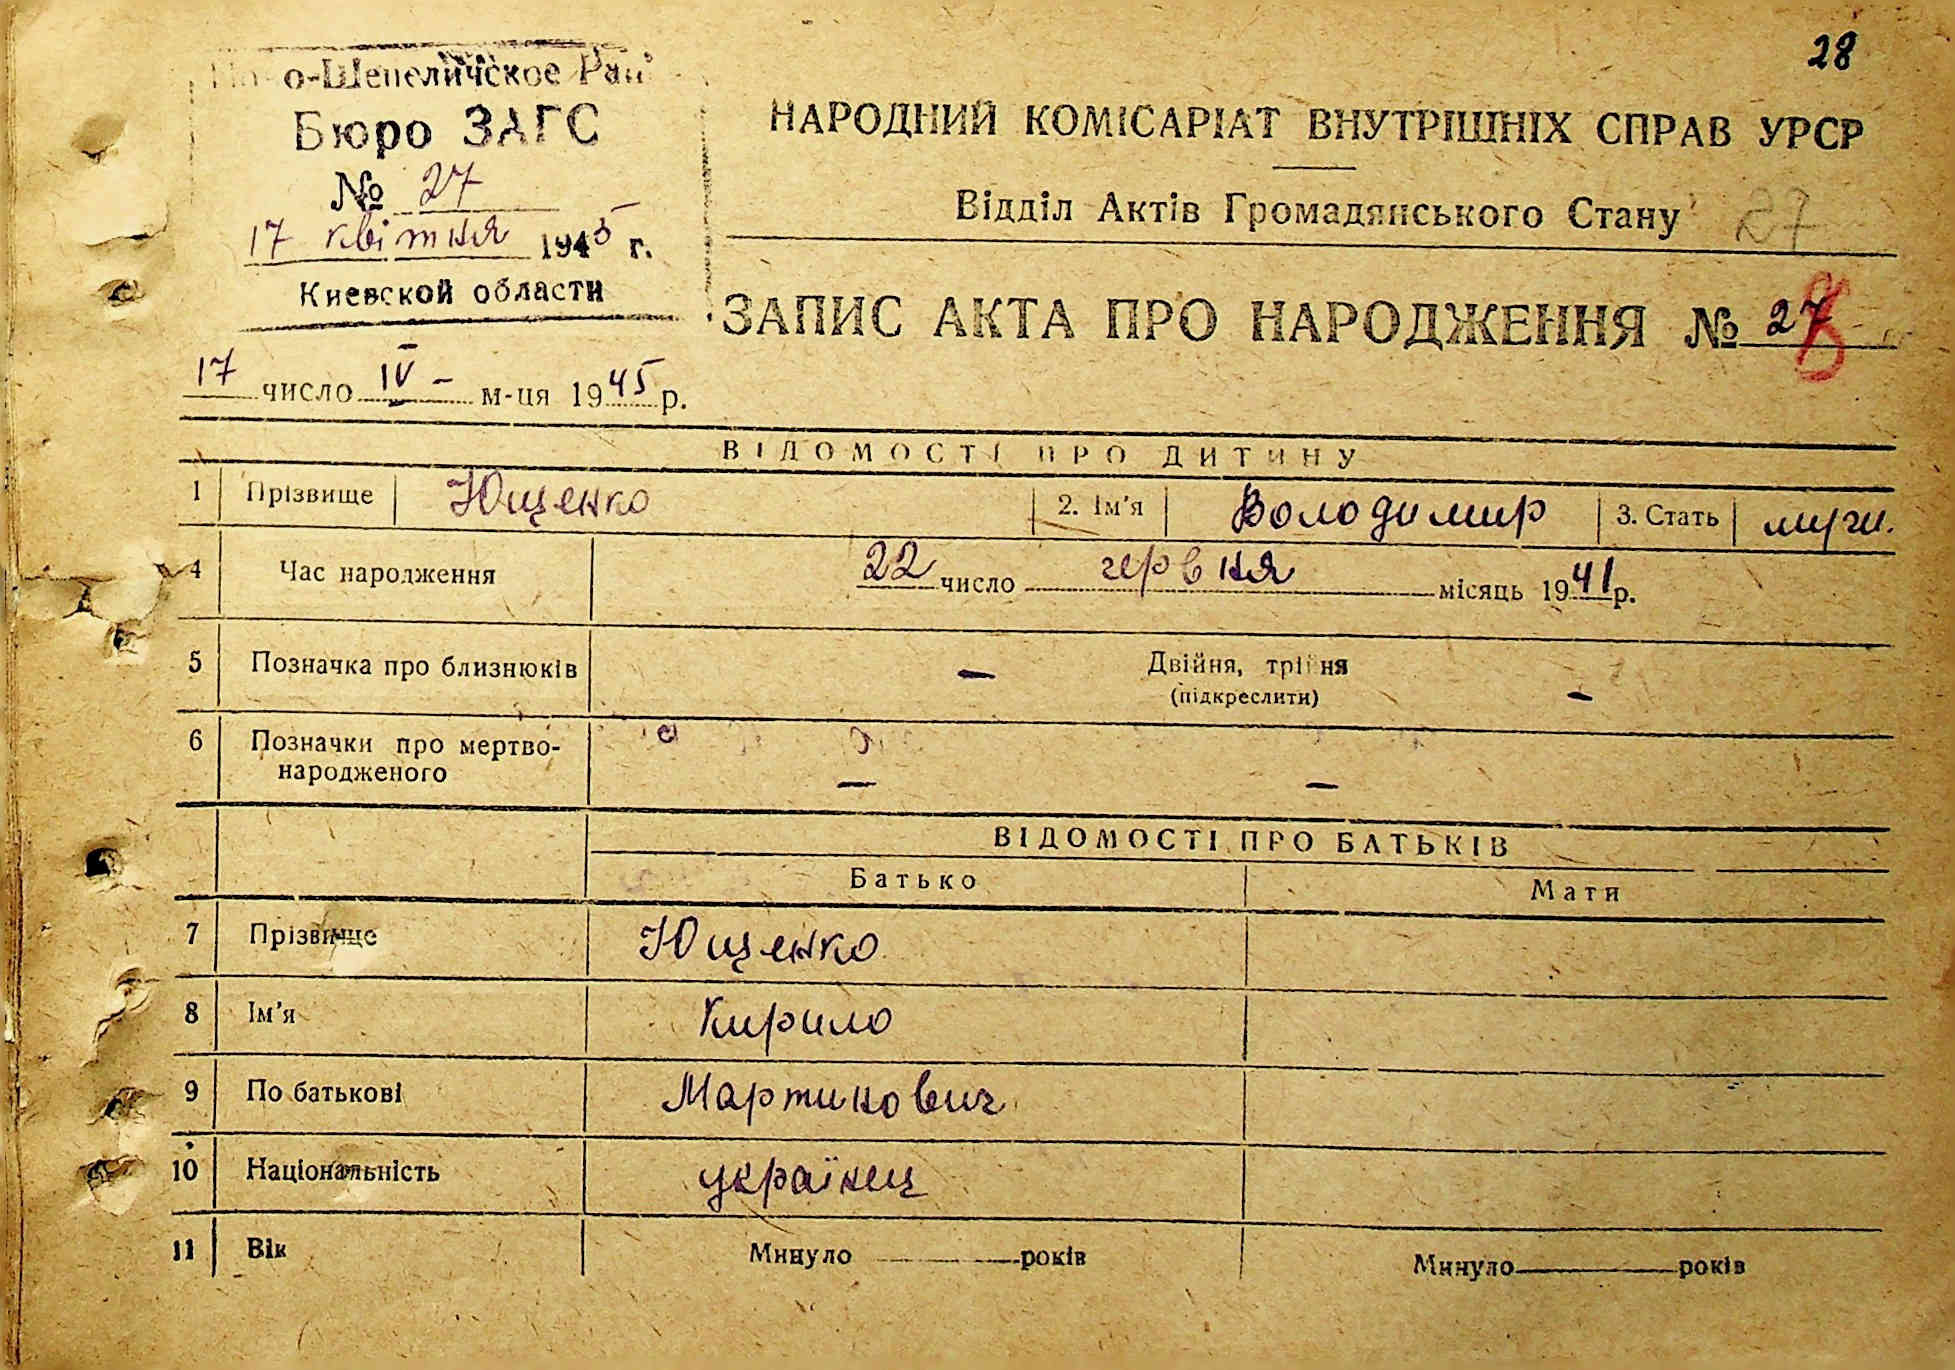 28
Ново-Шепеличское Рай
Бюро ЗАГС
№ 27
17 квітня 1945 г.
Киевской области
НАРОДНИЙ КОМІСАРІАТ ВНУТРІШНІХ СПРАВ УРСР
Відділ Актів Громадянського Стану 27
ЗАПИС АКТА ПРО НАРОДЖЕННЯ № 27
17 число IV - м-ця 1945 р.
ВІДОМОСТІ ПРО ДИТИНУ
1 Прізвище Ющенко 2. Ім'я Володимир 3. Стать муж.
4 Час народження 22 число червня місяць 1941 р.
5 Позначка про близнюків — Двійня, трійня
(підкреслити) —
6 Позначки про мертво-
народженого — —
ВІДОМОСТІ ПРО БАТЬКІВ
Батько Мати
7 Прізвище Ющенко
8 Ім'я Кирило
9 По батькові Мартинович
10 Національність українец
11 Вік Минуло років Минуло років